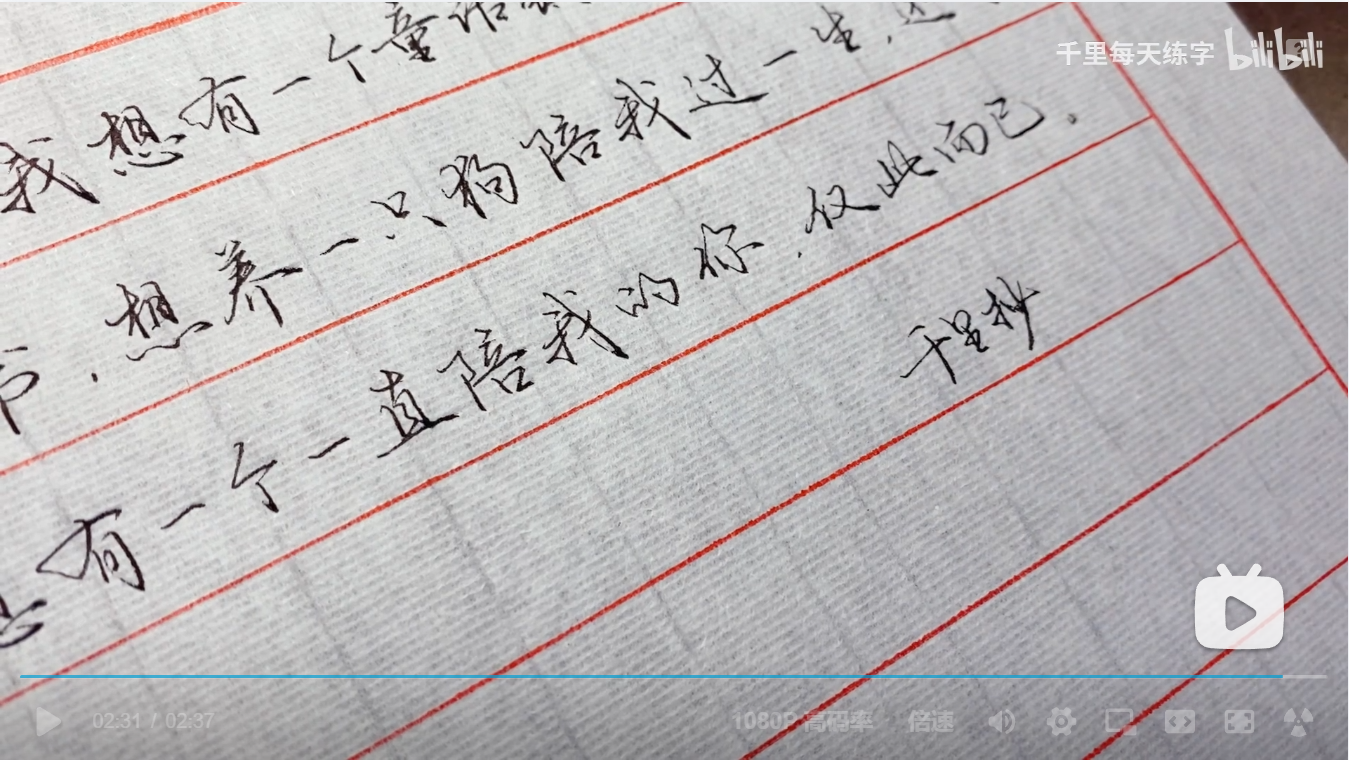 千里每天练字 bilibili
我想有一个童话
想养一只狗陪我过一生,这
有一个一直陪我的你,仅此而已。
千里抄
02:31 / 02:37
1080P 高码率 倍速